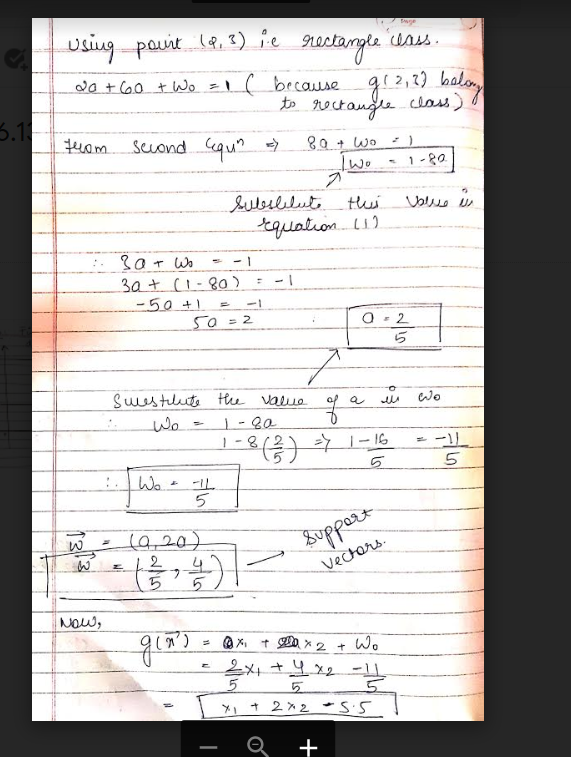 Using point (2,3) i.e rectangle class.
2a + 6a + W₀ = 1 ( because g(2,3) belong
to rectangle class)
6.13
From Second Equⁿ ⇒ 8a + W₀ = 1
W₀ = 1-8a
Substitute this value in
equation (1)
∴ 3a + W₀ = -1
3a + (1-8a) = -1
-5a + 1 = -1
5a = 2
a = 2/5
Substitute the value of a in W₀
∴ W₀ = 1 - 8a
1 - 8(2/5) ⇒ 1-16/5 = -11/5
∴ W₀ = -11/5
w⃗ = (a, 2a)
w⃗ = (2/5, 4/5)
Support
Vectors.
Now,
g(x⃗) = ax₁ + 2ax₂ + W₀
= 2/5 x₁ + 4/5 x₂ - 11/5
= x₁ + 2x₂ - 5.5